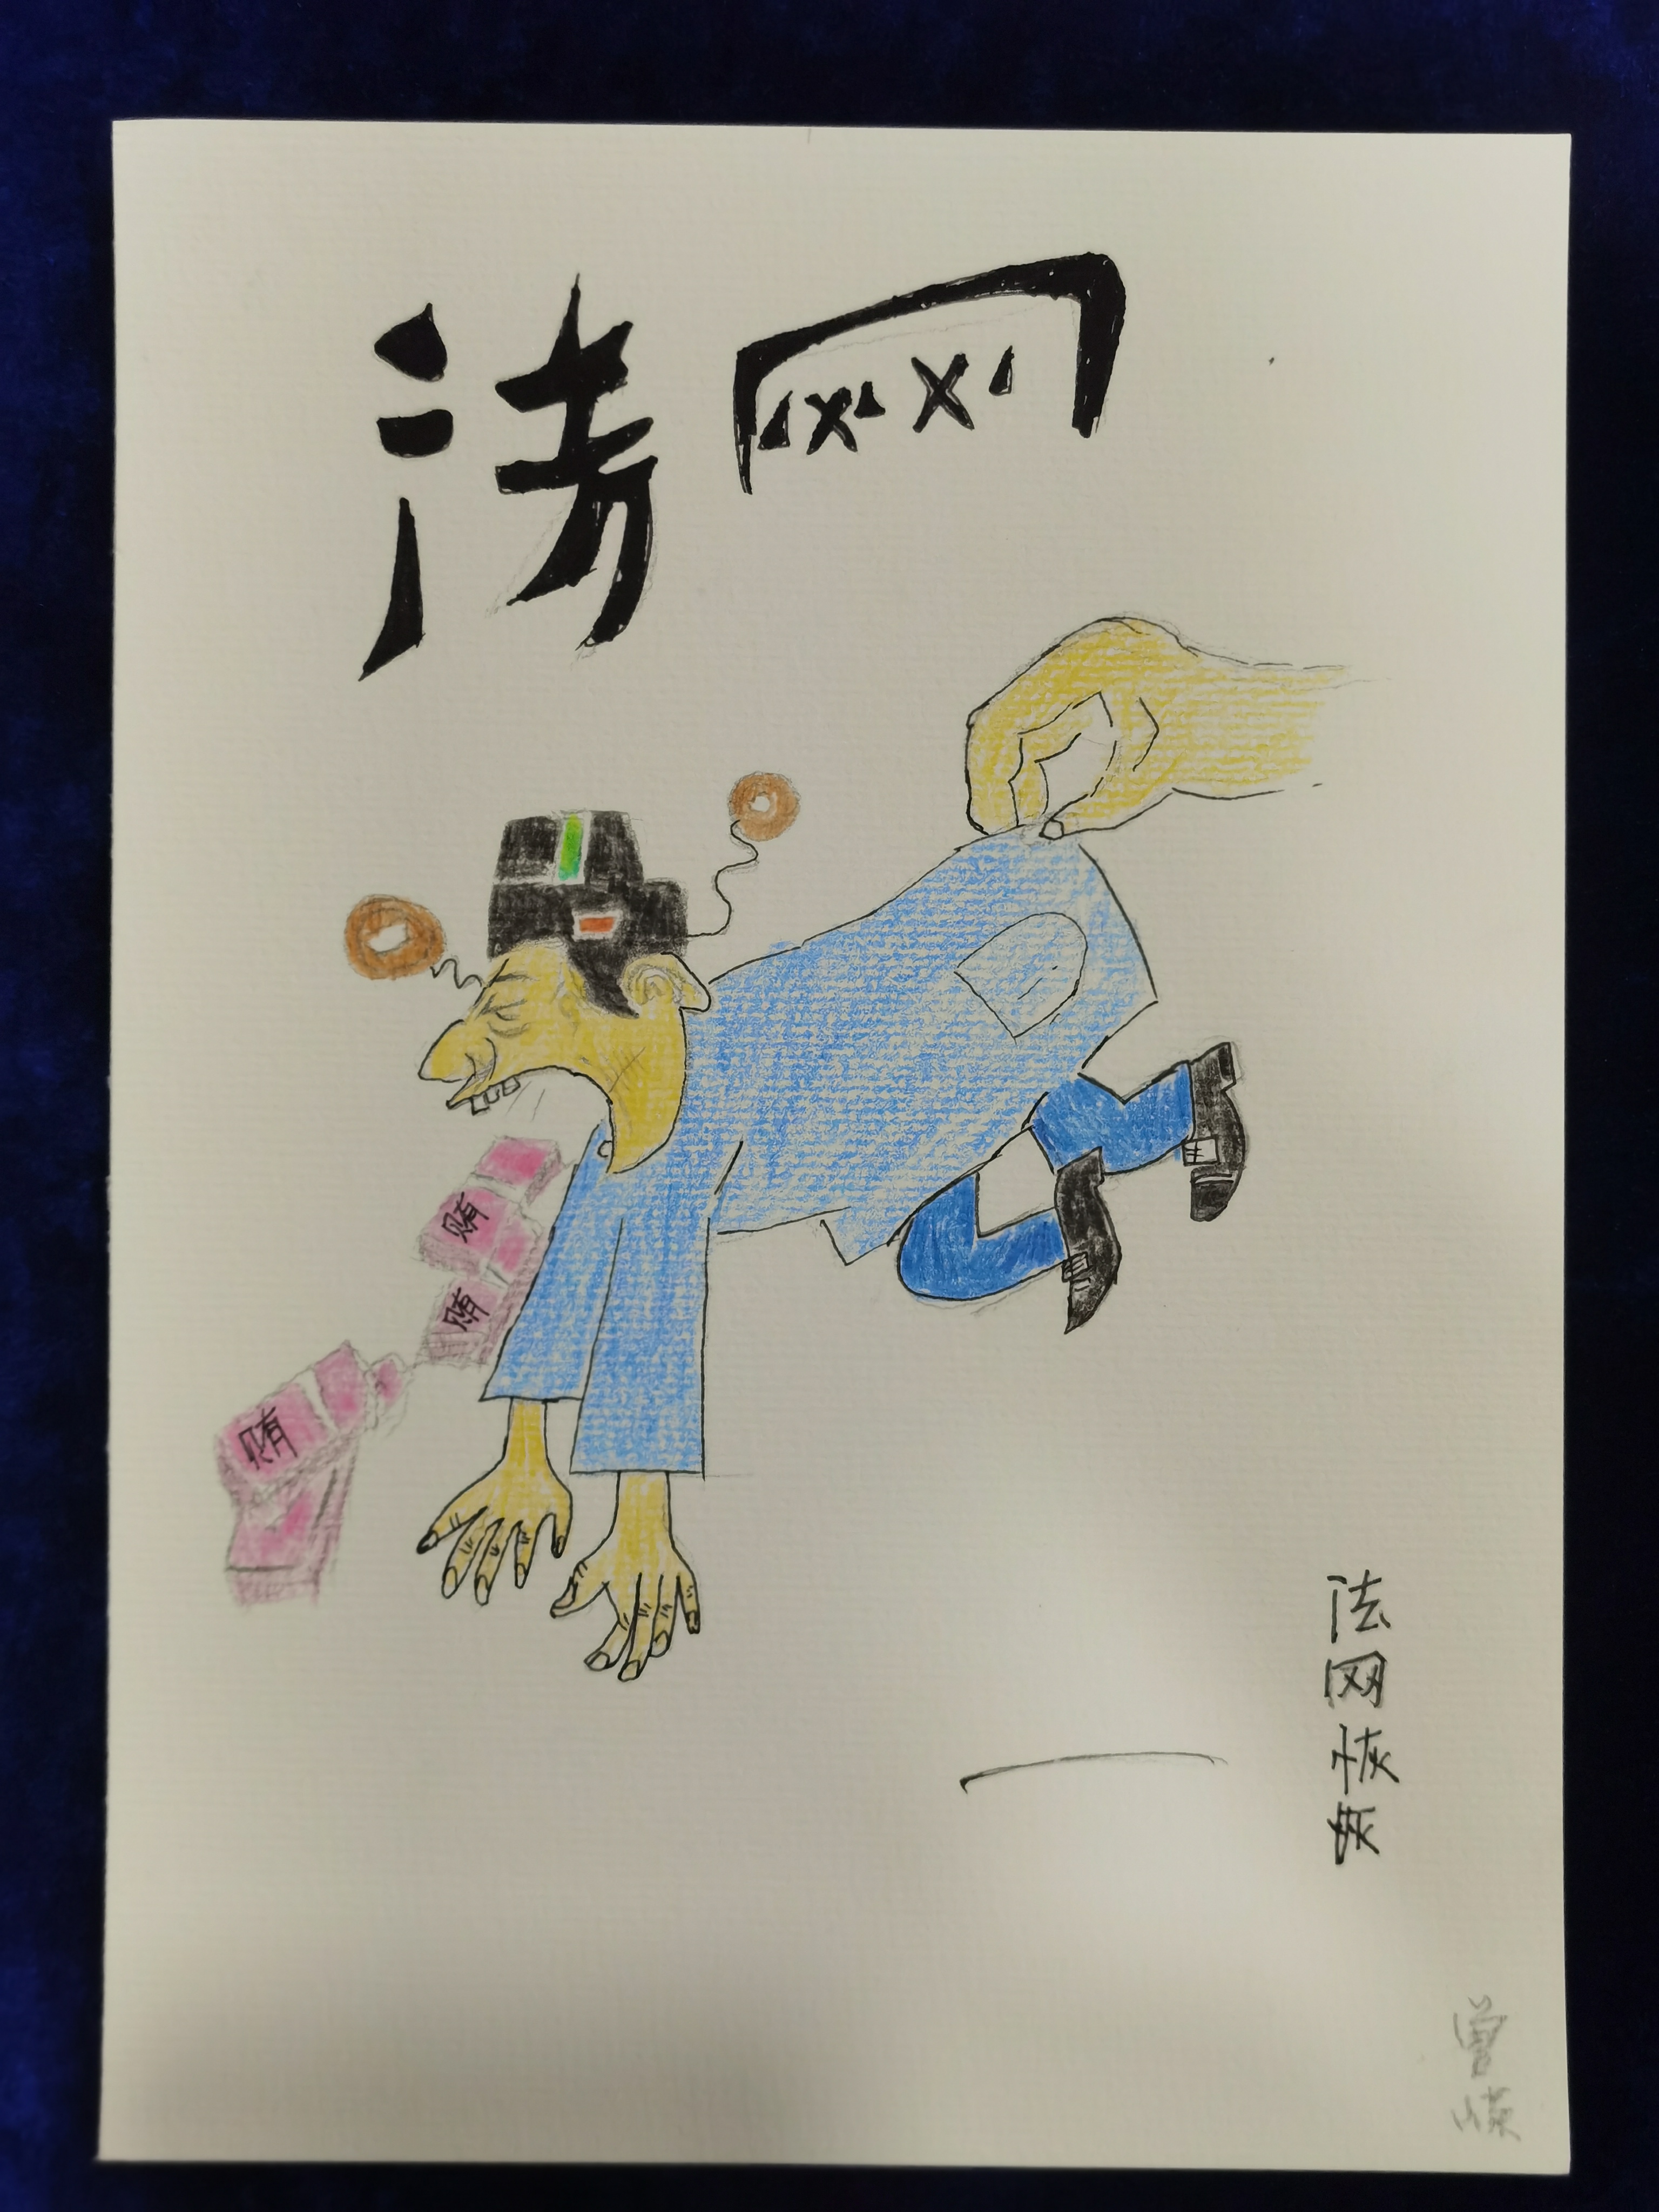 法网
贿
贿
贿
法网恢恢